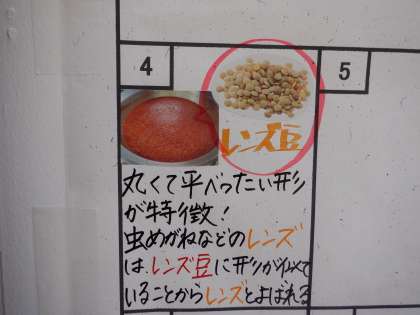 4
5
レンズ豆
丸くて平べったい形
が特徴!
虫めがねなどのレンズ
は、レンズ豆に形が似て
いることからレンズとよばれる